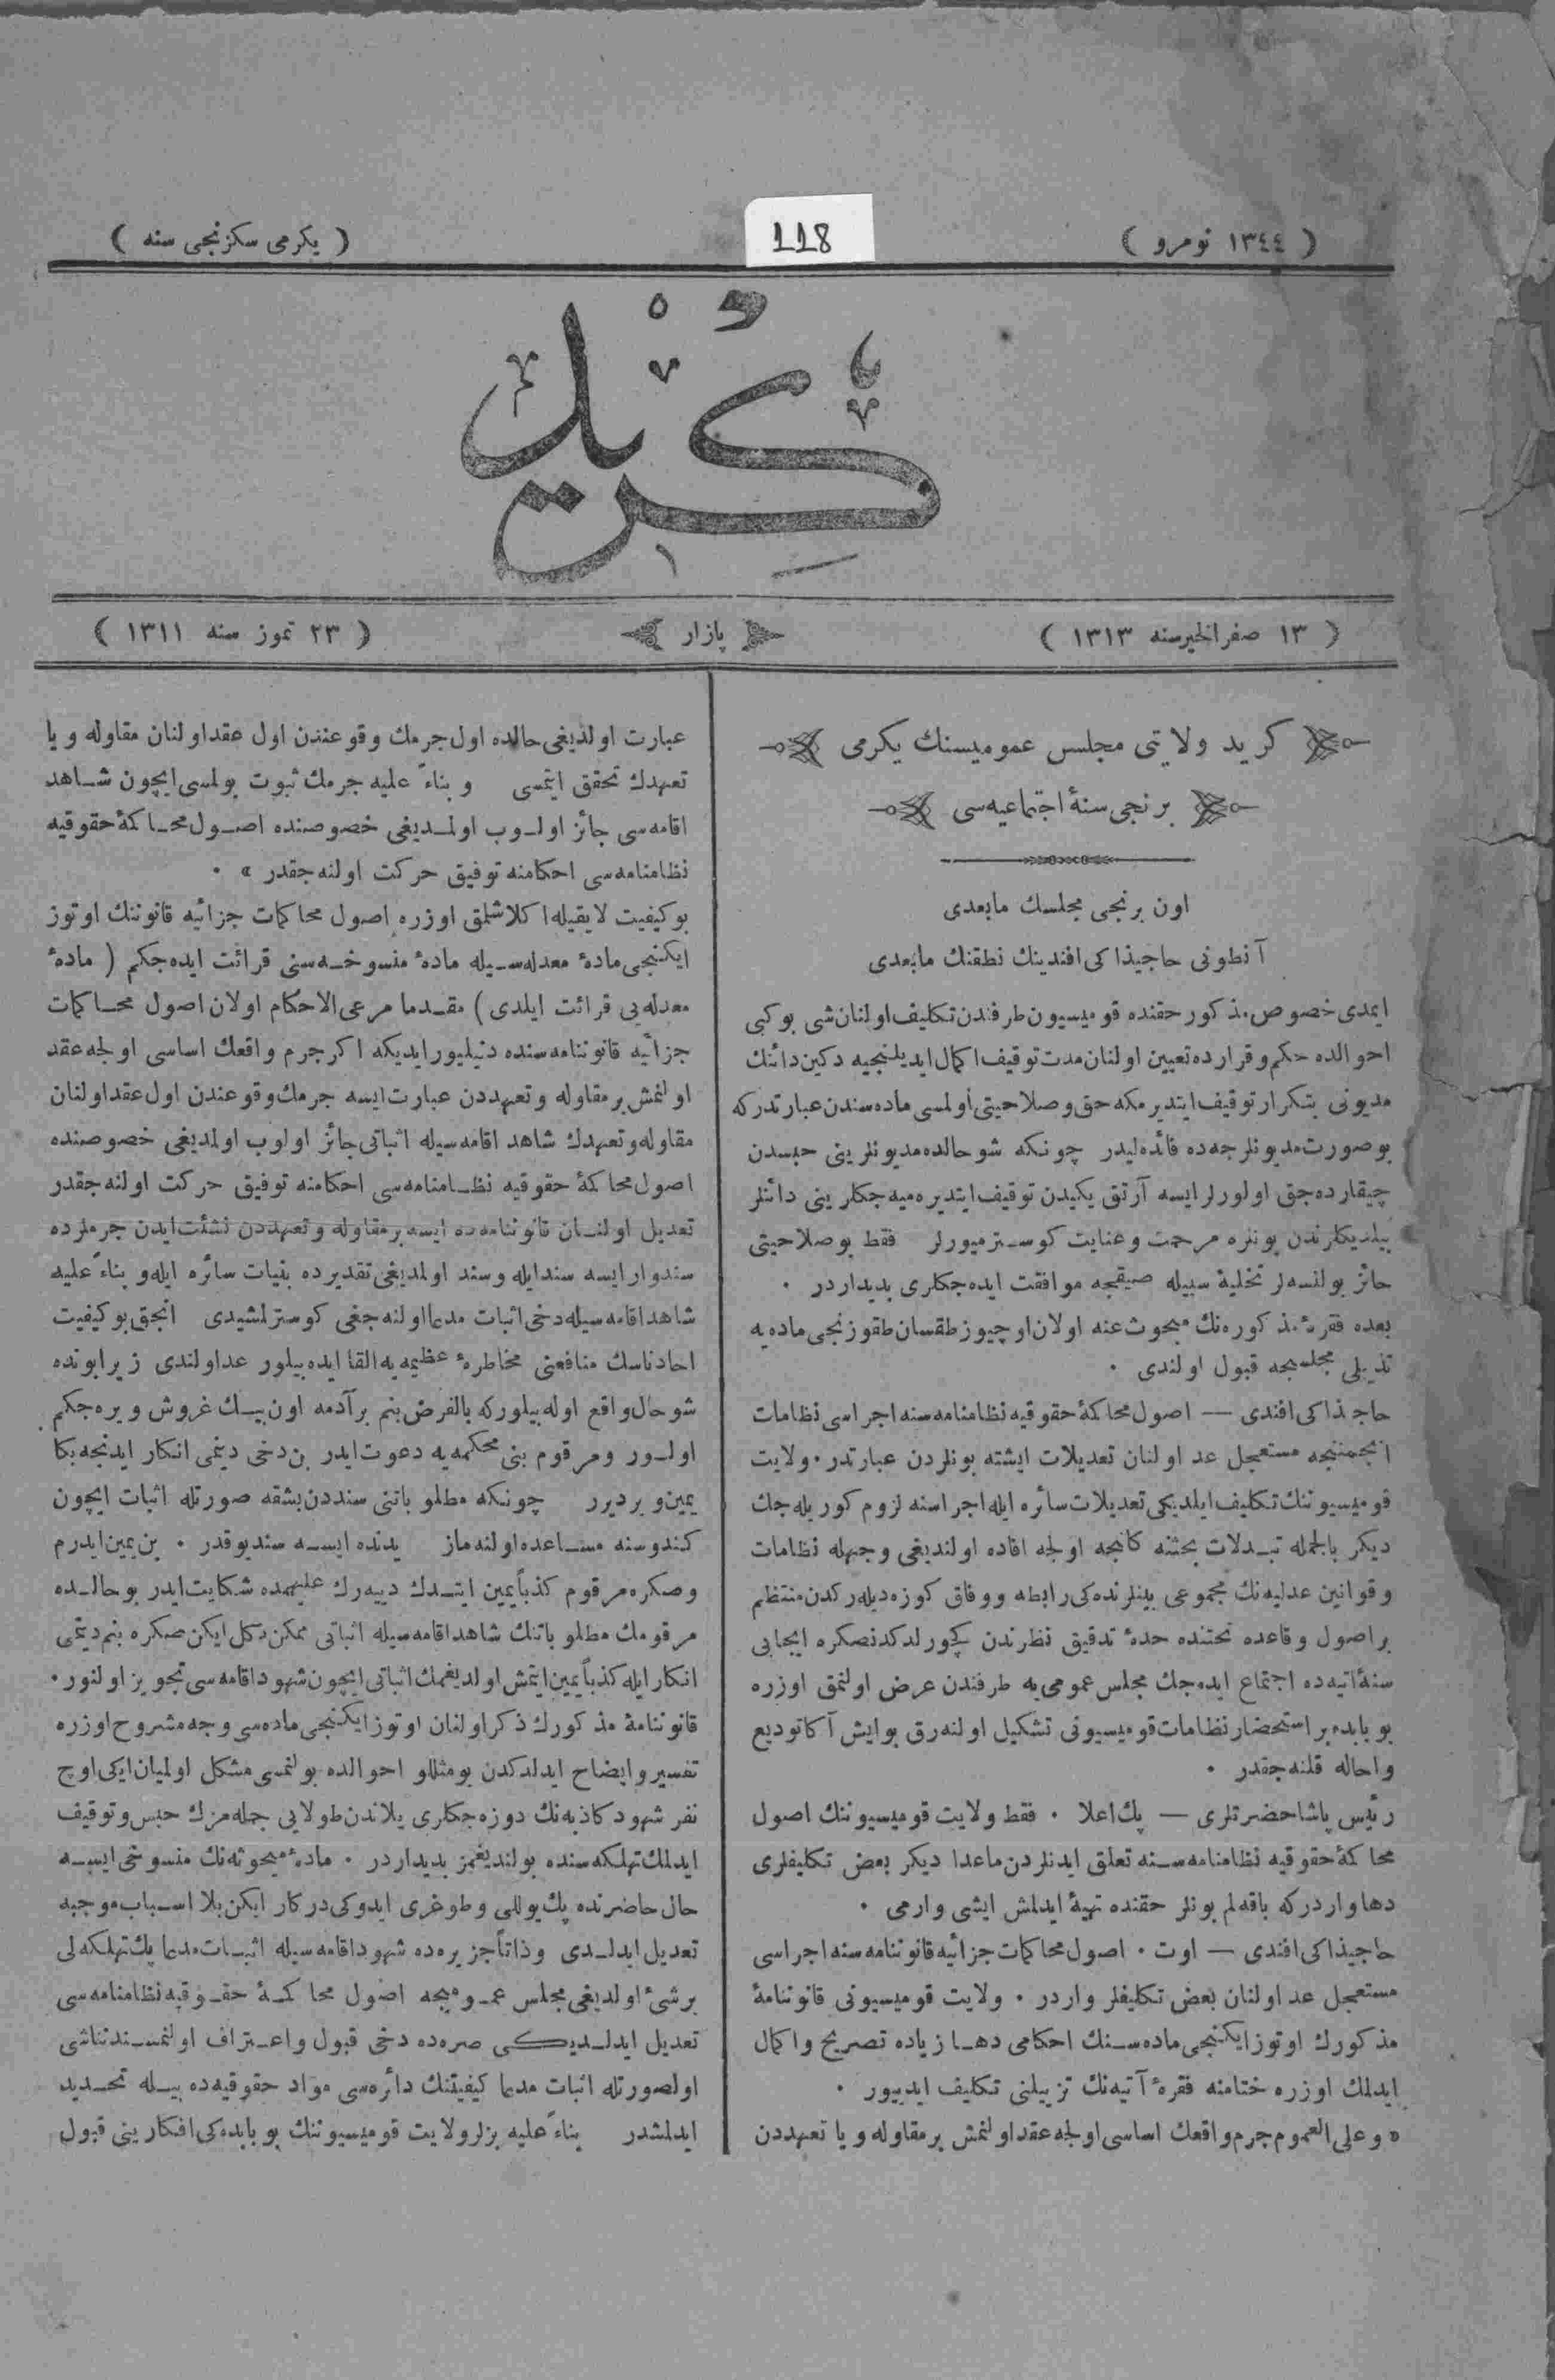 ( ١٣٤٤ نومرو )
118
( يكرمى سكزنجى سنه )
كريد
( ١٣ صفر الخير سنه ١٣١٣ )
پازار
( ٢٣ تموز سنه ١٣١١ )
كريد ولايتى مجلس عموميسنك يكرمى
برنجى سنۀ اجتماعيه‌سى
اون برنجى مجلسك مابعدى
آنطونى حاجيذاكى افندينك نطقنك مابعدى
ايمدى خصوص مذكور حقنده قوميسيون طرفندن تكليف اولنان شى بوكبى
احوالده حكم و قرارده تعيين اولنان مدت توقيف اكمال ايديلنجيه دكين دائنك
مديونى بتكرار توقيف ايتديرمكه حق و صلاحيتى اولمسى ماده‌سندن عبارتدركه
بو صورت مديونلرجه‌ده فائده‌ليدر چونكه شو حالده مديونلرينى حبسدن
چيقاره‌جق اولورلر ايسه آرتق يكيدن توقيف ايتديره‌ميه‌جكلرينى دائنلر
بيلديكلرندن بونلره مرحمت و عنايت كوسترميورلر فقط بو صلاحيتى
حائز بولنسه‌لر تخليۀ سبيله صيقجه موافقت ايده‌جكلرى بديداردر ٠
بعده فقرۀ مذكوره‌نك مبحوث عنه اولان اوچيوز طقسان طقوزنجى ماده‌يه
تذييلى مجلسجه قبول اولندى ٠
حاجذاكى افندى — اصول محاكمۀ حقوقيه نظامنامه‌سنه اجراسى نظامات
انجمننجه مستعجل عد اولنان تعديلات ايشته بونلردن عبارتدر ٠ ولايت
قوميسيوننك تكليف ايلديكى تعديلات سائره ايله اجراسنه لزوم كوريله‌جك
ديكر بالجمله تبدلات بحثنه كلنجه اولجه افاده اولنديغى وجهله نظامات
و قوانين عدليه‌نك مجموعى بينلرنده‌كى رابطه و وفاق كوزه‌ديله‌ركدن منتظم
بر اصول و قاعده تحتنده حدۀ تدقيق نظرندن كچورلدكدنصكره ايجابى
سنۀ اتيه‌ده اجتماع ايده‌جك مجلس عمومى‌يه طرفندن عرض اولنمق اوزره
بو بابده بر استحضار نظامات قوميسيونى تشكيل اولنه‌رق بو ايش آكا توديع
و احاله قلنه‌جقدر ٠
رئيس پاشا حضرتلرى — پك اعلا ٠ فقط ولايت قوميسيوننك اصول
محاكمۀ حقوقيه نظامنامه‌سنه تعلق ايدنلردن ماعدا ديكر بعض تكليفلرى
دها واردركه باقه‌لم بونلر حقنده تهيۀ ايدلمش ايشى وارمى ٠
حاجيذاكى افندى — اوت ٠ اصول محاكمات جزائيه قانوننامه‌سنه اجراسى
مستعجل عد اولنان بعض تكليفلر واردر ٠ ولايت قوميسيونى قانوننامۀ
مذكورك اوتوز ايكنجى ماده‌سنك احكامى دها زياده تصريح و اكمال
ايدلمك اوزره ختامنه فقرۀ آتيه‌نك تزييلنى تكليف ايدييور ٠
« و على العموم جرم واقعك اساسى اولجه عقد اولنمش بر مقاوله و يا تعهددن
عبارت اولديغى حالده اول جرمك وقوعندن اول عقد اولنان مقاوله و يا
تعهدك تحقق ايتمسى و بناءً عليه جرمك ثبوت بولمسى ايچون شاهد
اقامه‌سى جائز اولوب اولمديغى خصوصنده اصول محاكمۀ حقوقيه
نظامنامه‌سى احكامنه توفيق حركت اولنه‌جقدر » ٠
بو كيفيت لايقيله اكلاشلمق اوزره اصول محاكمات جزائيه قانوننك اوتوز
ايكنجى مادۀ معدله‌سيله مادۀ منسوخه‌سنى قرائت ايده‌جكم ( مادۀ
معدله‌يى قرائت ايلدى ) مقدما مرعى الاحكام اولان اصول محاكمات
جزائيه قانوننامه‌سنده دنيليور ايديكه اكر جرم واقعك اساسى اولجه عقد
اولنمش بر مقاوله و تعهددن عبارت ايسه جرمك وقوعندن اول عقد اولنان
مقاوله و تعهدك شاهد اقامه‌سيله اثباتى جائز اولوب اولمديغى خصوصنده
اصول محاكمۀ حقوقيه نظامنامه‌سى احكامنه توفيق حركت اولنه‌جقدر
تعديل اولنان قانوننامه‌ده ايسه بر مقاوله و تعهددن نشئت ايدن جرملرده
سند وار ايسه سند ايله و سند اولمديغى تقديرده بنيات سائره ايله و بناءً عليه
شاهد اقامه‌سيله دخى اثبات مدعا اولنه‌جغى كوسترلمشيدى انجق بو كيفيت
احاد ناسك منافعنى مخاطرۀ عظيمه‌يه القا ايده‌بيلور عد اولندى زيرا بونده
شو حال واقع اوله‌بيلوركه بالفرض بنم بر آدمه اون بيك غروش ويره‌جكم
اولور و مرقوم بنى محكمه‌يه دعوت ايدر بن دخى دينمى انكار ايدنجه بكا
يمين ويرديرر چونكه مطلوباتنى سنددن بشقه صورتله اثبات ايچون
كندوسنه مساعده اولنه‌ماز يدنده ايسه سند يوقدر ٠ بن يمين ايدرم
و صكره مرقوم كذباً يمين ايتدك دييه‌رك عليهمده شكايت ايدر بو حالده
مرقومك مطلوباتنك شاهد اقامه‌سيله اثباتى ممكن دكل ايكن صكره بنم ديتمى
انكار ايله كذباً يمين ايتمش اولديغمك اثباتى ايچون شهود اقامه‌سى تجويز اولنور ٠
قانوننامۀ مذكورك ذكر اولنان اوتوز ايكنجى ماده‌سى وجه مشروح اوزره
تفسير و ايضاح ايدلدكدن بومثللو احوالده بولنمسى مشكل اولميان ايكى اوچ
نفر شهود كاذبه‌نك دوزه‌جكلرى يلاندن طولايى جمله‌مزك حبس و توقيف
ايدلمك تهلكه‌سنده بولنديغمز بديداردر ٠ مادۀ مبحوثه‌نك منسوخى ايسه
حال حاضرنده پك يوللى و طوغرى ايدوكى دركار ايكن بلا اسباب موجبه
تعديل ايدلدى و ذاتاً جزيره‌ده شهود اقامه‌سيله اثبات مدعا پك تهلكه‌لى
بر شئ اولديغى مجلس عموميجه اصول محاكمۀ حقوقيه نظامنامه‌سى
تعديل ايدلديكى صره‌ده دخى قبول و اعتراف اولنمسندناشى
اولصورتله اثبات مدعا كيفيتنك دائره‌سى مواد حقوقيه‌ده بيله تحديد
ايدلمشدر بناءً عليه بزلر ولايت قوميسيوننك بو بابده‌كى افكارينى قبول